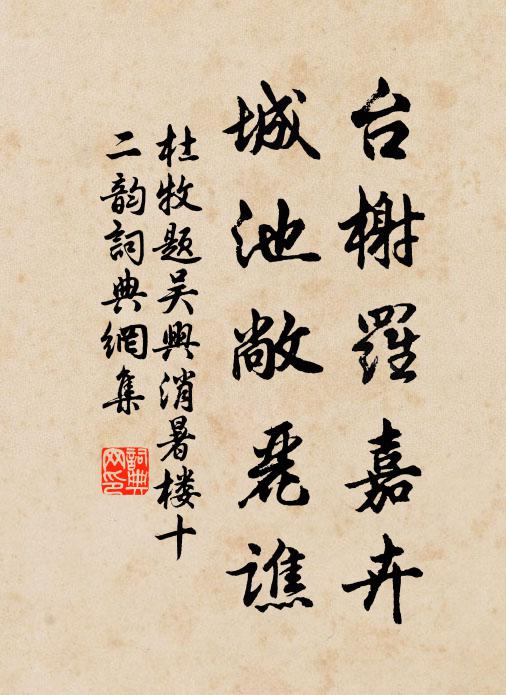 台榭羅嘉卉
城池敞麗譙
杜牧題吴興消暑楼十
二韵詞典網集
詞典
网印